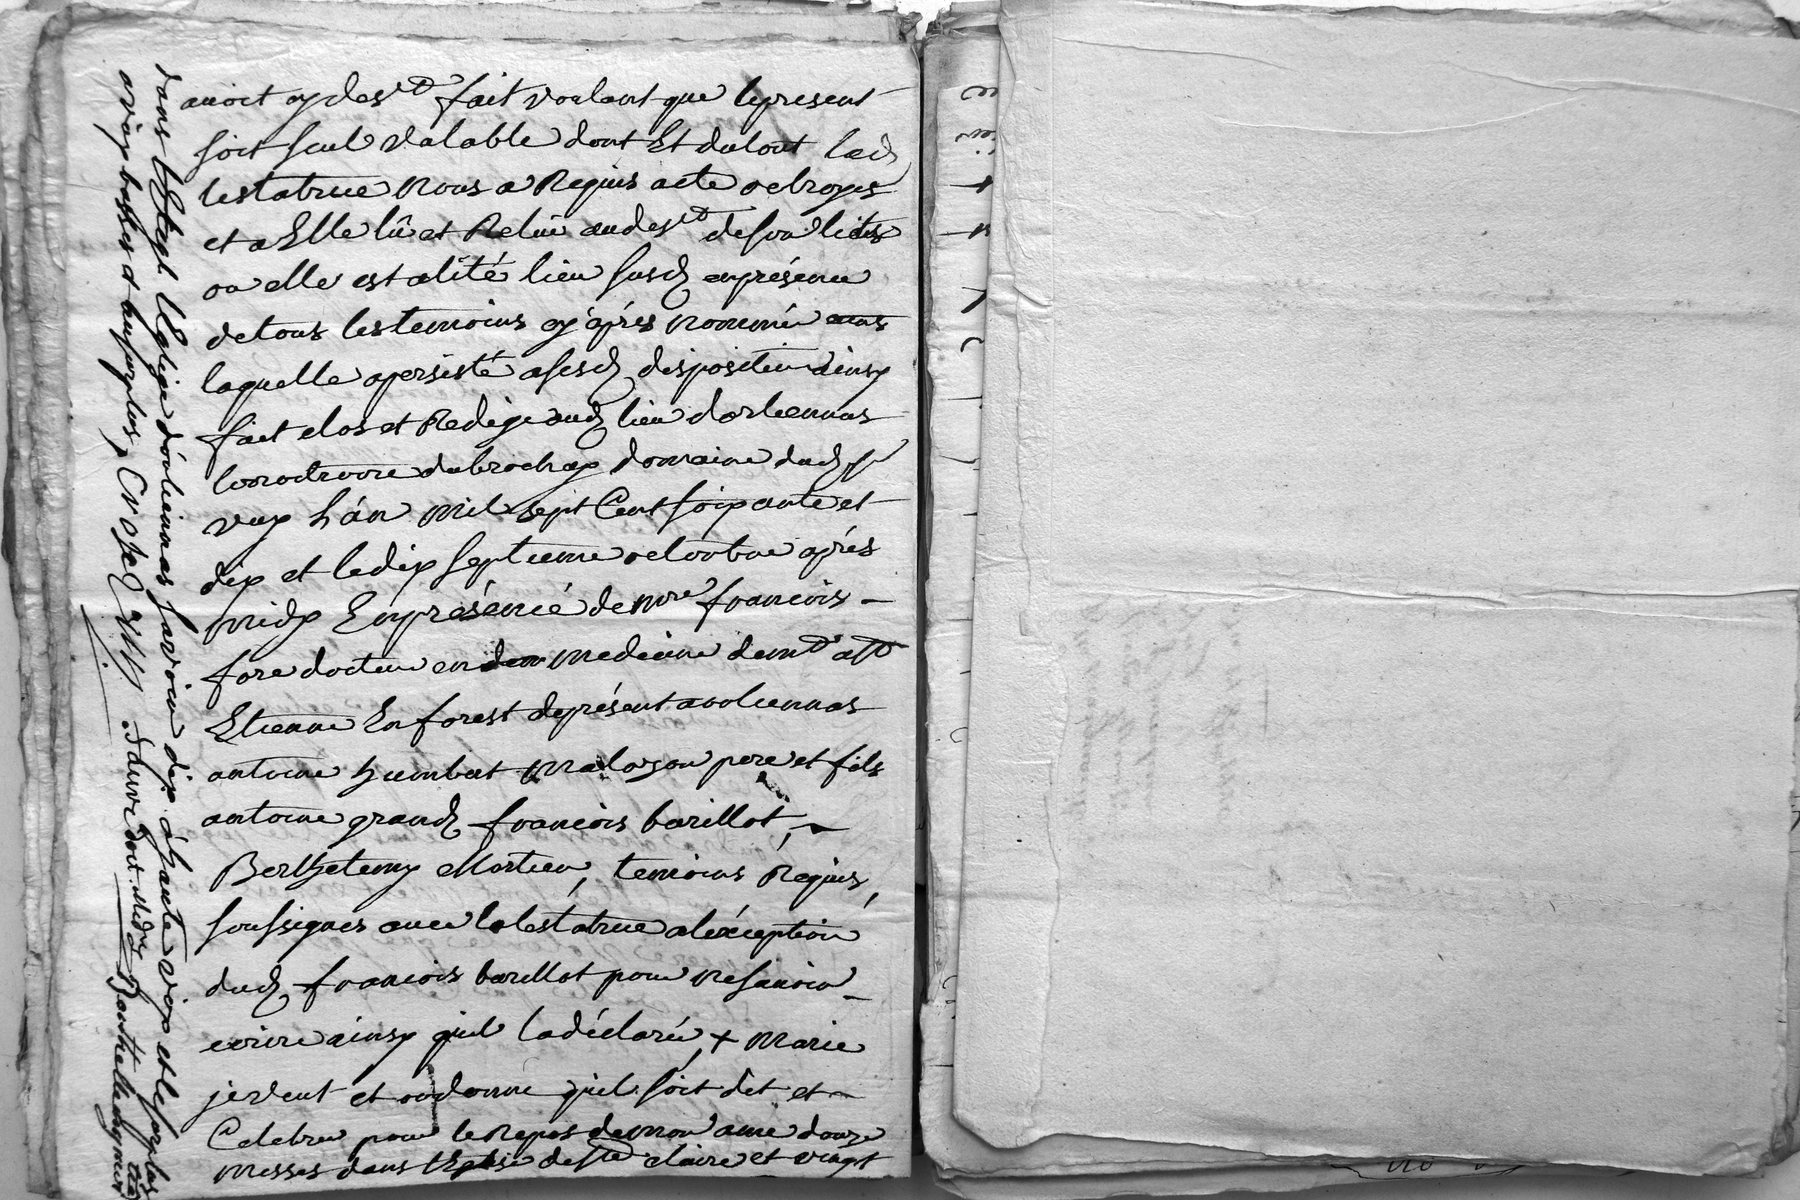 avoict cy des<sup>vt</sup> fait voulant que le present
soit seul valable dont Et du tout lad<sup>e</sup>
testatrice nous a Requis acte octroyes
et a Elle lû et Relüe audes<sup>vt</sup> de son lict
ou elle est alité lieu susd en présence
de tous les temoins cy après nommés
laquelle a persisté a sesd disposition ainsy
fait clos et Redigé aud lieu dorliennas
du brochay domaine dud s<sup>r</sup>
vux L'an mil sept Cent soixante et
dix et le dix septieme octobre après
midy En présence de m<sup>re</sup> francois
fore docteur en medecine de
Etienne En forest de présent a orliennas
antoine humbert maloson pere et fils
antoine grand francois barillot
Berthelemy Mortier, temoins Réquis,
soussignes avec la testatrice a l'éxception
dud francois barillot pour ne savoir
ecrire ainsy quil la déclaré, + Marie
je veut et ordonne quil soit dit et
Celebré pour le Repos de mon ame douze
messes dans l'Eglise de s<sup>te</sup> claire et vingt
dans l'Eglise d'orliennas savoir dix a haute voix et le surplus
a voix basses et